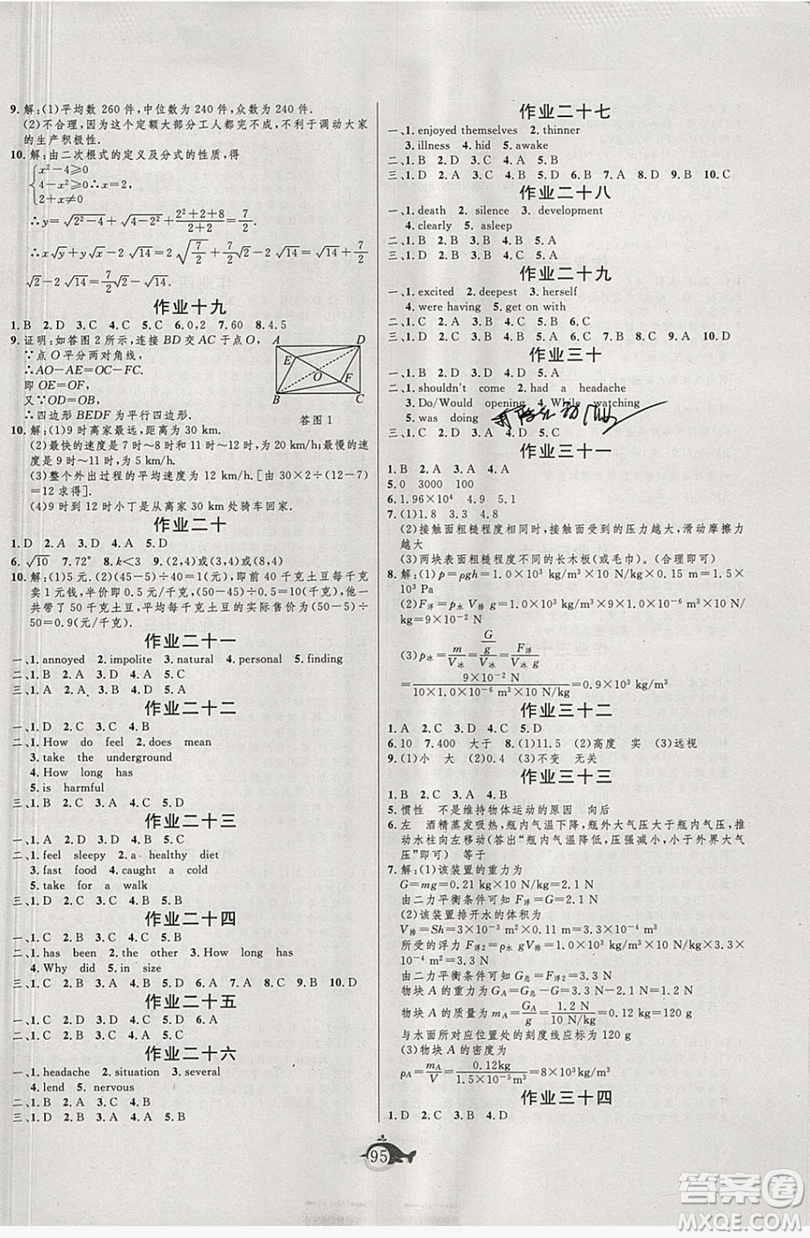 9.解:(1)平均数 260 件,中位数为 240 件,众数为 240 件.
(2)不合理,因为这个定额大部分工人都完不成,不利于调动大家
的生产积极性.
10.解:由二次根式的定义及分式的性质,得
{x²-4⩾0
4-x²⩾0 ∴x=2
2+x≠0
∴y=√(2²-4)+√(4-2²)+(2²+2+8)/(2+2)=7/2
∴x√y+y√x-2√14=2√(7/2)+(7/2)√2-2√14=
√14+(7/2)√2-2√14=(7/2)√2-√14.
作业十九
1.B 2.D 3.C 4.C 5.C 6.0,2 7.60 8.4.5
9.证明:如答图 2 所示,连接 BD 交 AC 于点 O
∵点 O 平分两对角线,
∴AO-AE=OC-FC.
即 OE=OF.
又∵OB=OD
∴四边形 BEDF 为平行四边形.
A D E O F B C
答图 1
10.解:(1)9 时离家最远,距离为 30 km.
(2)最快的速度是 7 时~8 时和 12 时~13 时,为 20 km/h;最慢
的速度是 8 时~9 时,为 10 km/h.
(3)整个外出过程的平均速度为 12 km/h.[由 30×2÷(12-7)
=12 求得].
(4)9 时到 12 时小丁是从离家 30 km 处骑车回家.
作业二十
1.D 2.A 3.D 4.A 5.D
6.√10 7.72° 8.k<3 9.(2,4)或(3,4)或(8,4)
10.解:(1)5元.(2)(45-5)÷40=1(元),即前 40 千克土豆每千克
卖 1 元钱,半价即 0.5 元/千克,(50-45)÷0.5=10(千克),他一
共带了 50 千克土豆,平均每千克土豆的实际售价为(50-5)÷
50=0.9(元/千克).
作业二十一
一、1. annoyed 2. impolite 3. natural 4. personal 5. finding
二、1.B 2.C 3.A 4.D 5.A
三、1.A 2.A 3.D 4.A 5.C
作业二十二
一、1.D 2.D 3.C 4.B
二、1. How do feel 2. does mean
3. take the underground
4. How long has
5. is harmful
三、1.B 2.C 3.A 4.C 5.D
作业二十三
一、1.A 2.D 3.C 4.B 5.D
二、1. feel sleepy 2. a healthy diet
3. fast food 4. caused of
5. take for a walk
三、1.D 2.C 3.B 4.A 5.B
作业二十四
一、1.C 2.D 3.C 4.C 5.B
二、1. has been 2. the other 3. How long has
4. Why did 5. in size
三、1.D 2.A 3.C 4.D 5.B 6.C 7.A 8.C 9.B 10.D
作业二十五
一、1.C 2.D 3.C 4.D 5.D 6.A
二、1.D 2.D 3.C 4.B 5.A
作业二十六
一、1. headache 2. situation 3. several
4. lend 5. nervous
二、1.B 2.D 3.A 4.B 5.A
三、1.A 2.C 3.D 4.A 5.B
作业二十七
一、1. enjoyed themselves 2. thinner
3. illness 4. hid 5. awake
二、1.B 2.D 3.C 4.A 5.B
三、1.C 2.D 3.D 4.A 5.D 6.A 7.B 8.D 9.B 10.C
作业二十八
一、1. death 2. silence 3. development
4. clearly 5. asleep
二、1.B 2.C 3.D 4.B 5.A
三、1.D 2.C 3.A 4.D 5.B
作业二十九
一、1. excited 2. deepest 3. herself
4. were having 5. get on with
二、1.B 2.C 3.B 4.D 5.A
三、1.D 2.A 3.C 4.A 5.B 6.D 7.C 8.B 9.A 10.D
作业三十
一、1. shouldn't come 2. had a headache
3. Do/Would opening 4. While watching
5. was doing
二、1.B 2.A 3.B 4.C 5.D
作业三十一
1.B 2.D 3.C 4.A
5.0 3000 100
6.1.96×10⁴ 4.9 5.1
7.(1)ACD
(2)接触面粗糙程度相同时,接触面受到的压力越大,滑动摩擦力
越大
(3)两块表面粗糙程度不同的长木板(或毛巾)。(合理即可)
8.解:(1)p=ρgh=1.0×10³×10×0.15=1.5×10³ Pa
(2)F浮=ρ水 V排 g=1.0×10³×9×10⁻⁶×10=
9×10⁻² N
(3)ρ冰=m/V冰=(G/g)/V冰=G/(V冰 g)
=9×10⁻²/(10×1.0×10⁻⁶×10)=0.9×10³ kg/m³
作业三十二
1.A 2.C 3.C 4.C 5.D
6.10 7.400 大于 8.(1)11.5 (2)高度 实 (3)远视
9.(1)小 大 (2)0.4 (3)不变 无关
作业三十三
1.A 2.C 3.B 4.B
5.惯性 不是维持物体运动的原因 向后
6.左 酒精蒸发吸热,瓶内气温下降,瓶外大气压大于瓶内气压,推
动水柱向左移动(答出“瓶内气温降低,压强减小,小于外界大气
压”即可) 等于
7.解:(1)该装置的重力为
G=mg=0.21 kg×10 N/kg=2.1 N
由二力平衡条件可知 F浮=G=2.1 N
(2)该装置排开水的体积为
V排=Sh=3×10⁻³ m³
所受的浮力 F浮2=ρ水 gV排=3.3 N
由二力平衡条件可知 G总=F浮2=3.3 N
物块 A 的重力为 GA=G总-G=1.2 N
物块 A 的质量为 mA=GA/g=1.2 N/(10 N/kg)=0.12 kg=120 g
与水面所对应位置处的刻度线应标为 120 g
(3)物块 A 的密度为
ρA=mA/V=0.12kg/(1.5×10⁻⁵ m³)=8×10³ kg/m³
作业三十四
1.D 2.C 3.A 4.D
95
答案圈
MXQE.COM